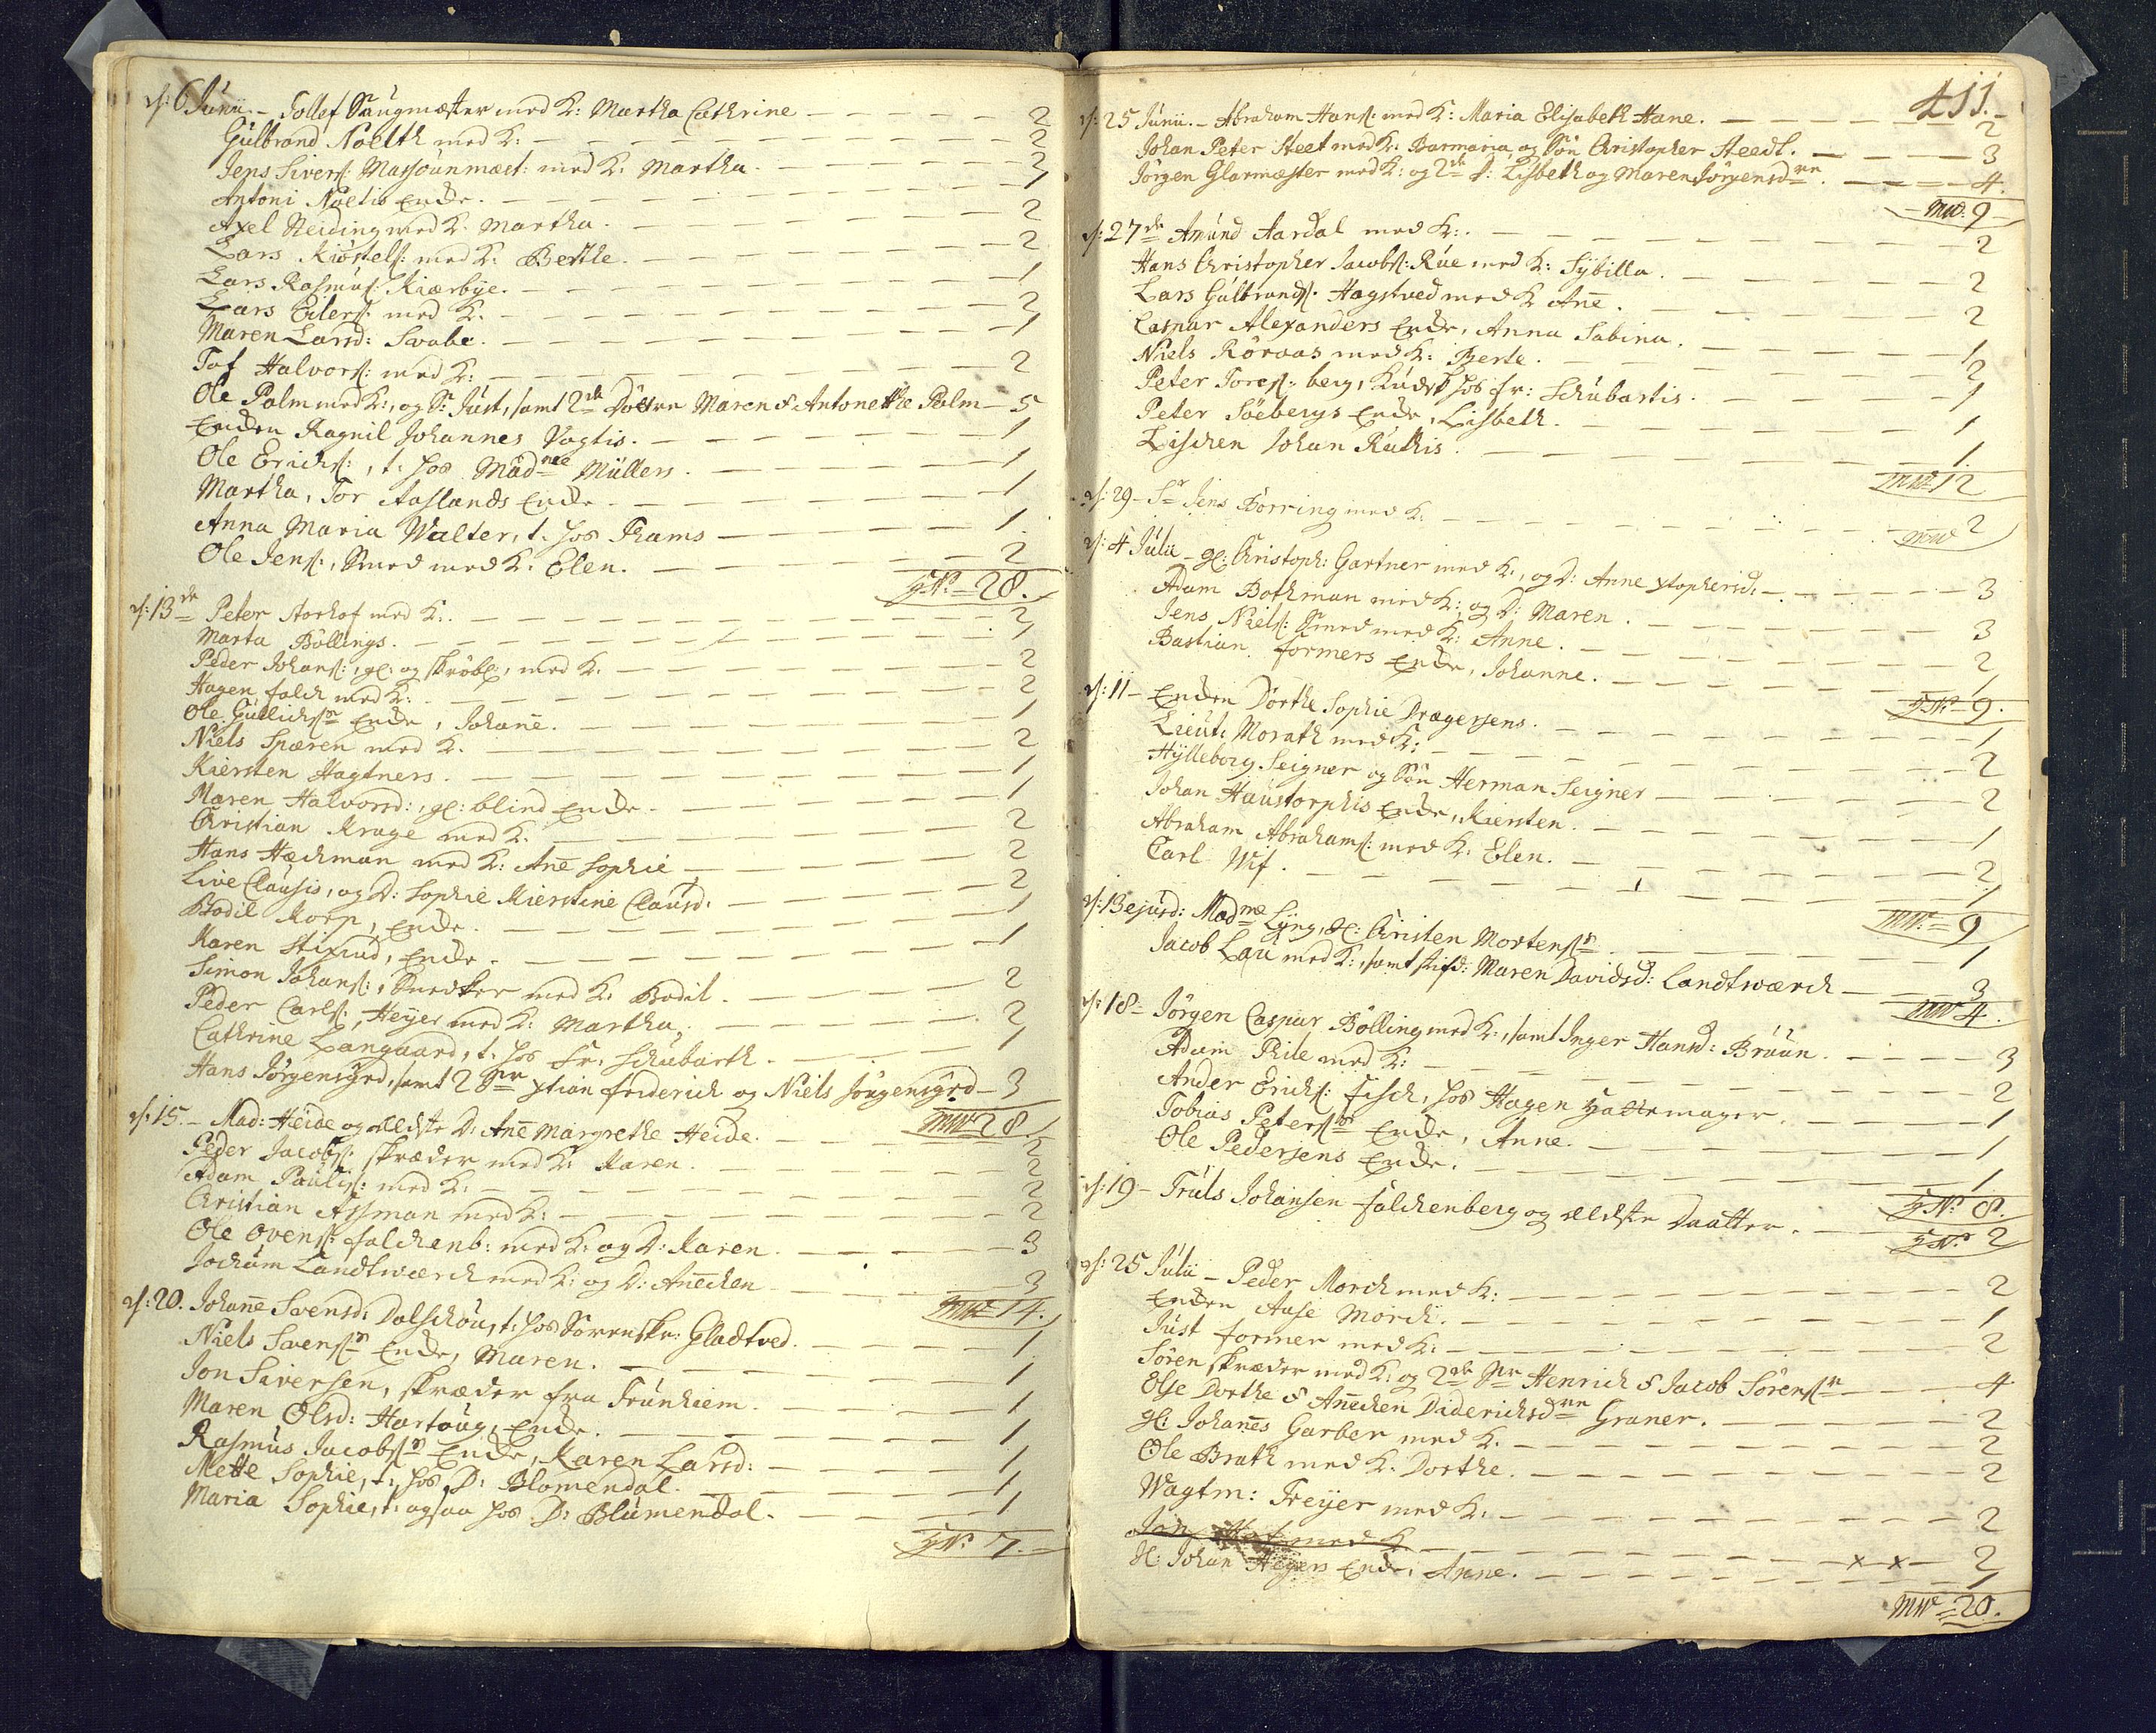 d: 6 Junii. - Tollef Saugmæster med K: Martha Cathrine - 2
Gulbrand Noelth med K: - 2
Jens Sivers: Massounmæst: med K: Martha. - 2
Antoni Noeltis Enche. - 1
Axel Reiding med K. Martha. - 2
Lars Kiøstels: med K: Berthe. - 2
Lars Rasmus: Kiærbye. - 1
Lars Eilers: med K. - 2
Maren Larsd: Svabe. - 1
Tof Halvors: med K: - 2
Ole Palm med K:, og S: Just, samt 2de Døttre Maren & Antonethe Palm - 5
Enchen Ragnil Johannes Vogtis. - 1
Ole Erichs:, t. hos Madme Müllers. - 1
Martha, Tor Aaslands Enche - 1
Anna Maria Walter, t. hos Thams - 1.
Ole Jens:, Smed med K. Elen. - 2
28.
d: 13de Peter Storhof med K:. - 2
Marta Böllings. - 1
Peder Johans:, gl: og skröbl:, med K. - 2
Hagen Falch med K: - 2
Ole Gullichsns Enche, Johane. - 1
Niels Spæren med K. - 2
Kiersten Hagtners. - 1
Maren Halvorsd:, gl: blind Enche. - 1
Christian Krage med K. - 2
Hans Hechman med K: Ane Sophie - 2
Live Clausis, og D: Sophie Kierstine Clausd. - 2
Bodil Korp, Enche. - 1
Karen Stixrud, Enche. - 1
Simon Johans:, Snedker med K. Bodil. - 2
Peder Carls:, Heyer med K: Martha. - 2
Cathrine Langaard, t. hos Fr: Schubarth. - 1
Hans Jörgensgrd, samt 2 Snr Xtian Friderich og Niels Jörgensgrd - 3
28
d: 15. - Mad: Heide og ældste D: Ane Margrethe Heide. - 2
Peder Jacobs: skræder med K: Karen. - 2
Adam Paulis: med K. - 2
Christian Assman med K: - 2
Ole Ovens: Falchenb: med K: og D: Karen. - 3
Jochum Landtwærch med K: og D: Anechen - 3
14.
d: 20. Johane Svensd: Dolschou, t: hos Sorenskr: Gladtved. - 1
Niels Svensns Enche, Maren. - 1
Jon Siversen, skræder fra Trunhiem. - 1
Maren Olsd: Hartoug, Enche. - 1
Rasmus Jacobsns Enche, Karen Larsd: - 1
Mette Sophie, t: hos D: Blomendal. - 1
Maria Sophie, t: ogsaa hos D: Blumendal. - 1
7.
411.
d: 25 Junii. - Abraham Hans: med K: Maria Elisabeth Hane. - 2
Johan Peter Steet med K: Barmaria, og Søn Christopher Steedt. - 3
Jörgen Glarmæster med K: og 2de D: Lisbeth og Maren Jörgensdrn. - 4.
9
d: 27de Amund Aardal med K:. - 2
Hans Christopher Jacobs: Rüe med K: Sybilla. - 2
Lars Gulbrands: Hagstved med K Ane. - 2
Caspar Alexanders Enche, Anna Sabina. - 1
Niels Röraas med K: Berte. - 2
Peter Tores: berg, Kudsk hos Fr: Schubartis. - 1
Peter Söebergs Enche, Lisbeth. - 1
Lischen Johan Ruthis. - 1.
12
d: 29 - Sr Jens Borring med K. - 2
d: 4 Julii - gl: Christoph: Gartner med K:, og D: Anne Xtophersd: - 3
Adam Bothman med K: og D: Maren. - 3
Jens Niels: Smed med K: Anne. - 2
Bastian Formers Enche, Johanne. - 1
9.
d: 11 - Enchen Dorthe Sophie Dragersens. - 1
Lieut: Morath med K: - 2
Hylleborg Seigner og Søn Herman Seigner - 2
Johan Haustorphis Enche, Kiersten. - 1
Abraham Abrahams: med K: Elen. - 2
Carl Wif. - 1
9
d: 13 ejusd: Madme Lyng, gl: Christen Mortensn - 1
Jacob Lau med K:, samt stifd: Maren Davidsd: Landtwærch - 3
4.
d: 18 - Jörgen Caspar Bölling med K:, samt Inger Hansd: Bruun. - 3
Adam Thile med K: - 2
Ander Erichs: Fisch, hos Hagen Hattemager. - 1
Tobias Petersns Enche, Anne. - 1
Ole Pedersens Enche. - 1
8.
d: 19 - Truls Johansen Falchenberg og ældste Daatter. - 2
d: 25 Julii - Peder Morch med K: - 2
Enchen Aase Morch. - 1
Just Former med K: - 2
Sören skræder med K: og 2de Snr Henrich & Jacob Sörensn - 4
Else Dorthe & Anechen Diderichsdrn Graner. - 2
gl: Johanes Garber med K. - 2
Ole Brath med K. Dorthe. - 2
Wagtm: Freyer med K. - 2
med K - x x - 2
gl: Johan Heyers Enche, Anne. - 1
20.